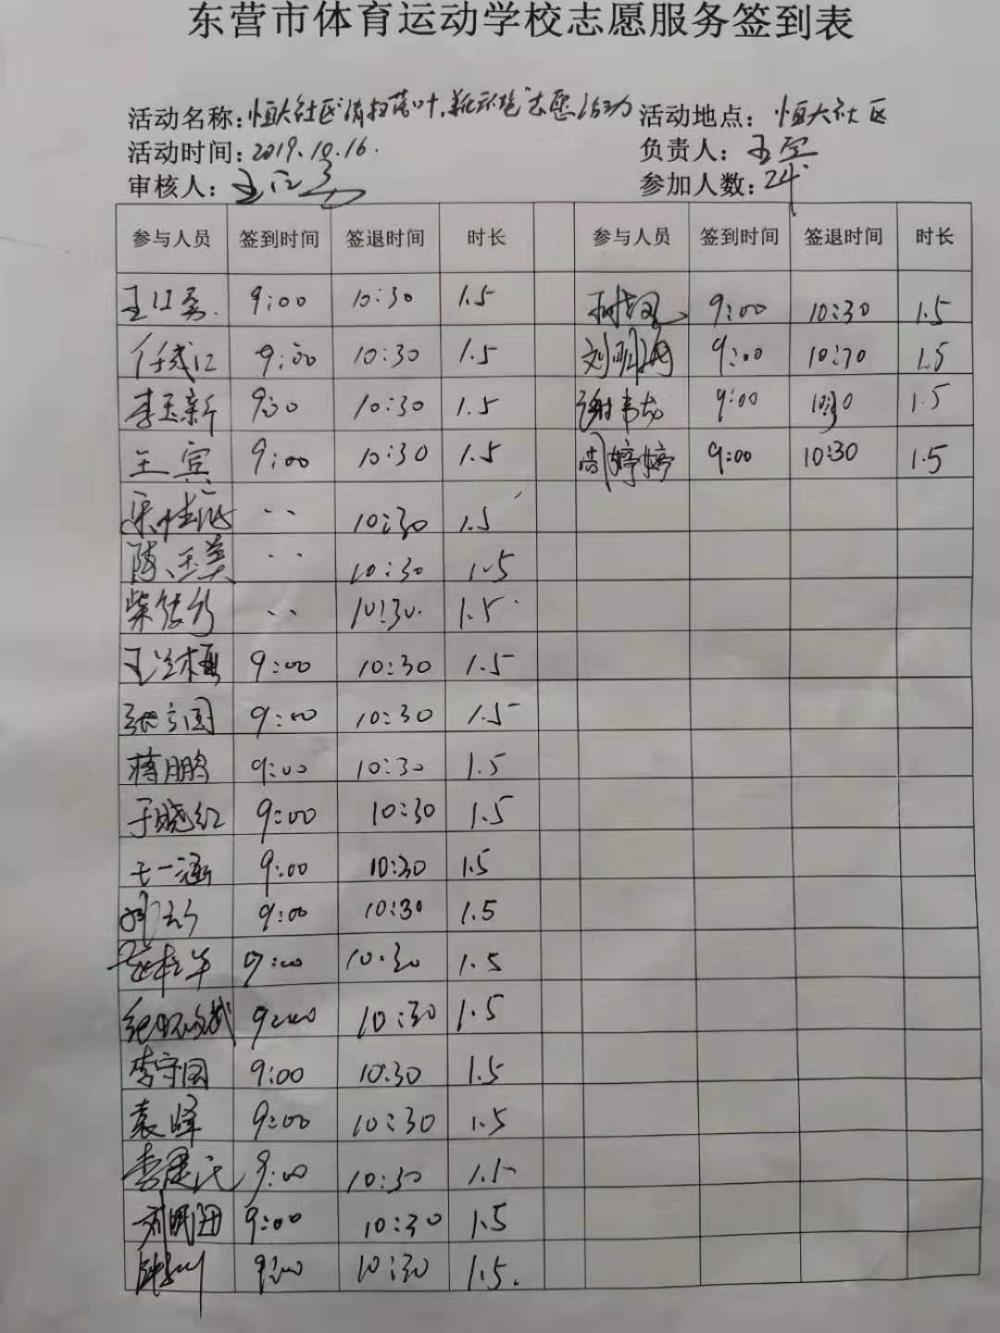 东营市体育运动学校志愿服务签到表
活动名称:恒大社区"清扫落叶,美化环境"志愿活动 活动地点: 恒大社区
活动时间:2019.10.16. 负责人:王宾
审核人:王江勇 参加人数:24
参与人员 签到时间 签退时间 时长 参与人员 签到时间 签退时间 时长
王江勇 9:00 10:30 1.5 9:00 10:30 1.5
任成江 9:00 10:30 1.5 刘 9:00 10:30 1.5
李玉新 9:00 10:30 1.5 谢 9:00 10:30 1.5
王宾 9:00 10:30 1.5 周婷婷 9:00 10:30 1.5
.. 10:30 1.5
陈玉美 .. 10:30 1.5
柴 .. 10:30. 1.5
王兰梅 9:00 10:30 1.5
张 国 9:00 10:30 1.5
蒋鹏 9:00 10:30 1.5
于晓红 9:00 10:30 1.5
王一涵 9:00 10:30 1.5
9:00 10:30 1.5
9:00 10:30 1.5
纪 9:00 10:30 1.5
李守国 9:00 10:30 1.5
袁峰 9:00 10:30 1.5
李建民 9:00 10:30 1.5
9:00 10:30 1.5
9:00 10:30 1.5.